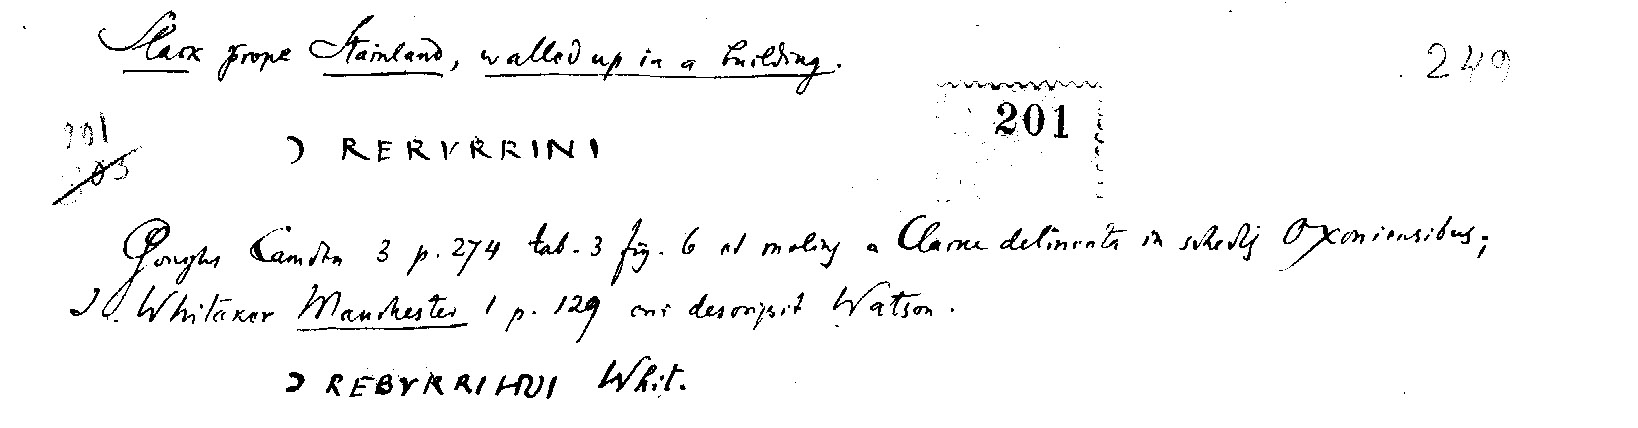 Slack prope Stainland, walled up in a building.
249
201
201
Ɔ RERVRRINI
Goughs Camden 3 p. 274 tab. 3 fig. 6 et melius a Clarke delineata in schedis Oxoniensibus;
J. Whitaker Manchester 1 p. 129 cui descripsit Watson.
Ɔ REBVRRIHUI Whit.